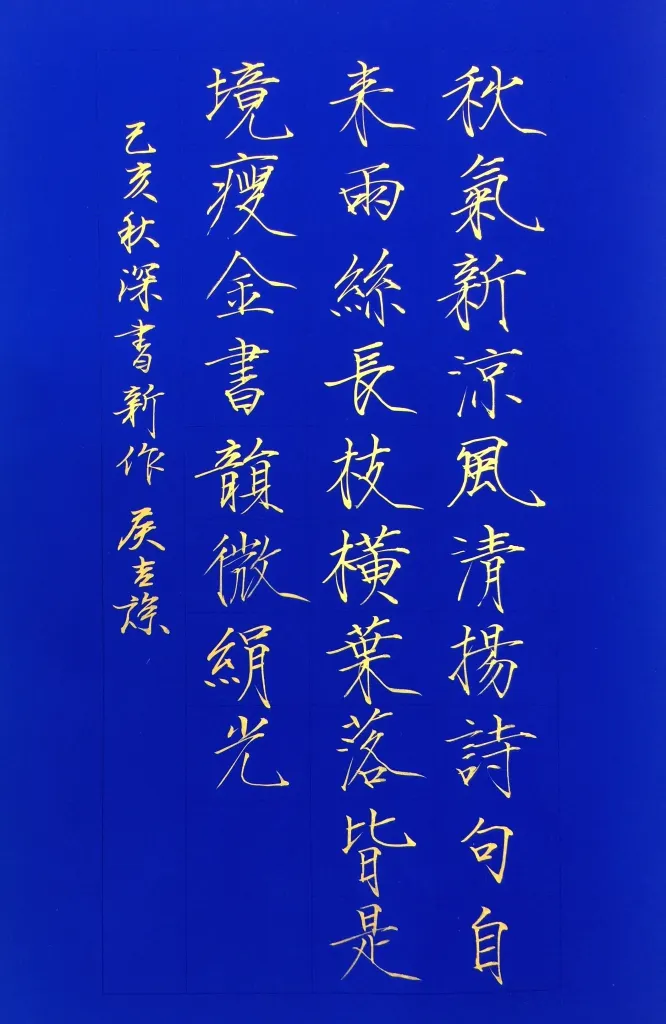 秋氣新涼風清揚詩句自
来雨絲長枝横葉落皆是
境瘦金書韻微絹光
己亥秋深書新作 侯吉諒